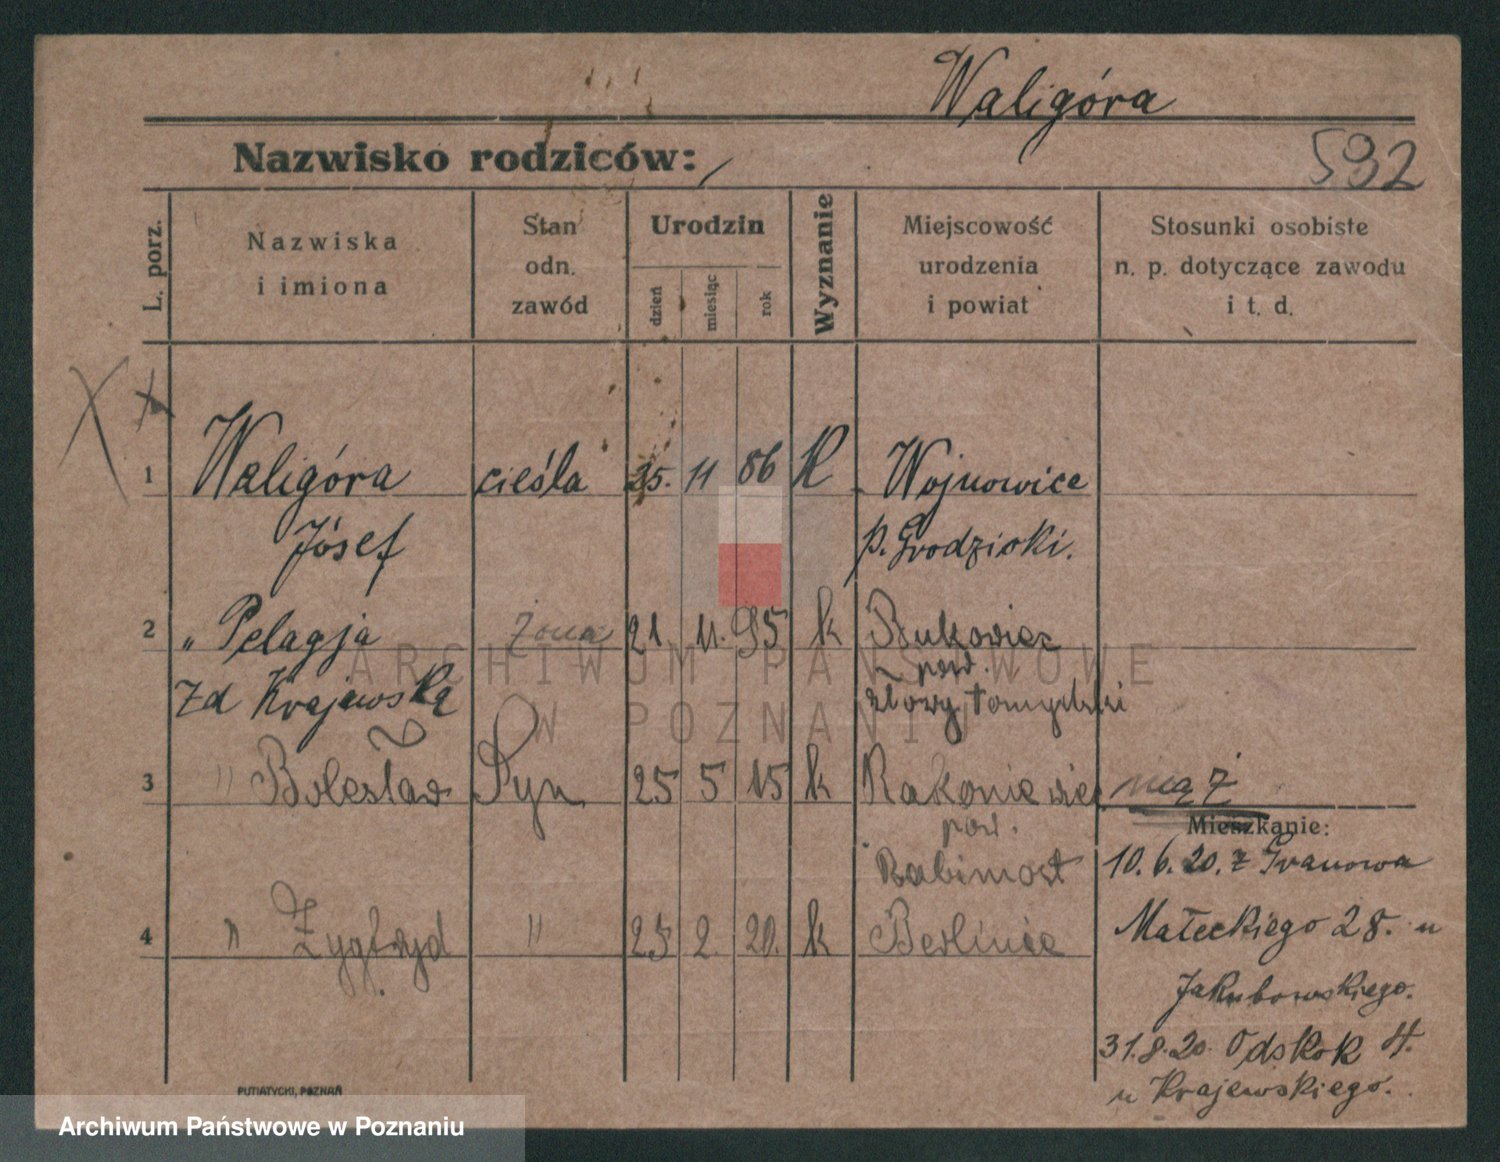 Waligóra
Nazwisko rodziców:
532
L. porz.
Nazwiska
i imiona
Stan
odn.
zawód
Urodzin
dzień
miesiąc
rok
Wyznanie
Miejscowość
urodzenia
i powiat
Stosunki osobiste
n. p. dotyczące zawodu
i t. d.
1 Waligóra cieśla 25. 11 86 K Wojnowice
Józef p. Grodziski.
2 " Pelagja żona 21. 11. 95 k Bukowiec
pow.
zd Krajewska
3 " Bolesław Syn 25 5 15 k Rakoniewice mąż
pow.
Babimost
4 " Zygfryd " 25 2. 20. k Berlinie
Mieszkanie:
10. 6. 20. z
Małeckiego 28. u
Jakubowskiego.
31.8.20. Odskok 4.
u Krajewskiego.
PUTIATYCKI, POZNAŃ
ARCHIWUM PAŃSTWOWE
W POZNANIU
Archiwum Państwowe w Poznaniu